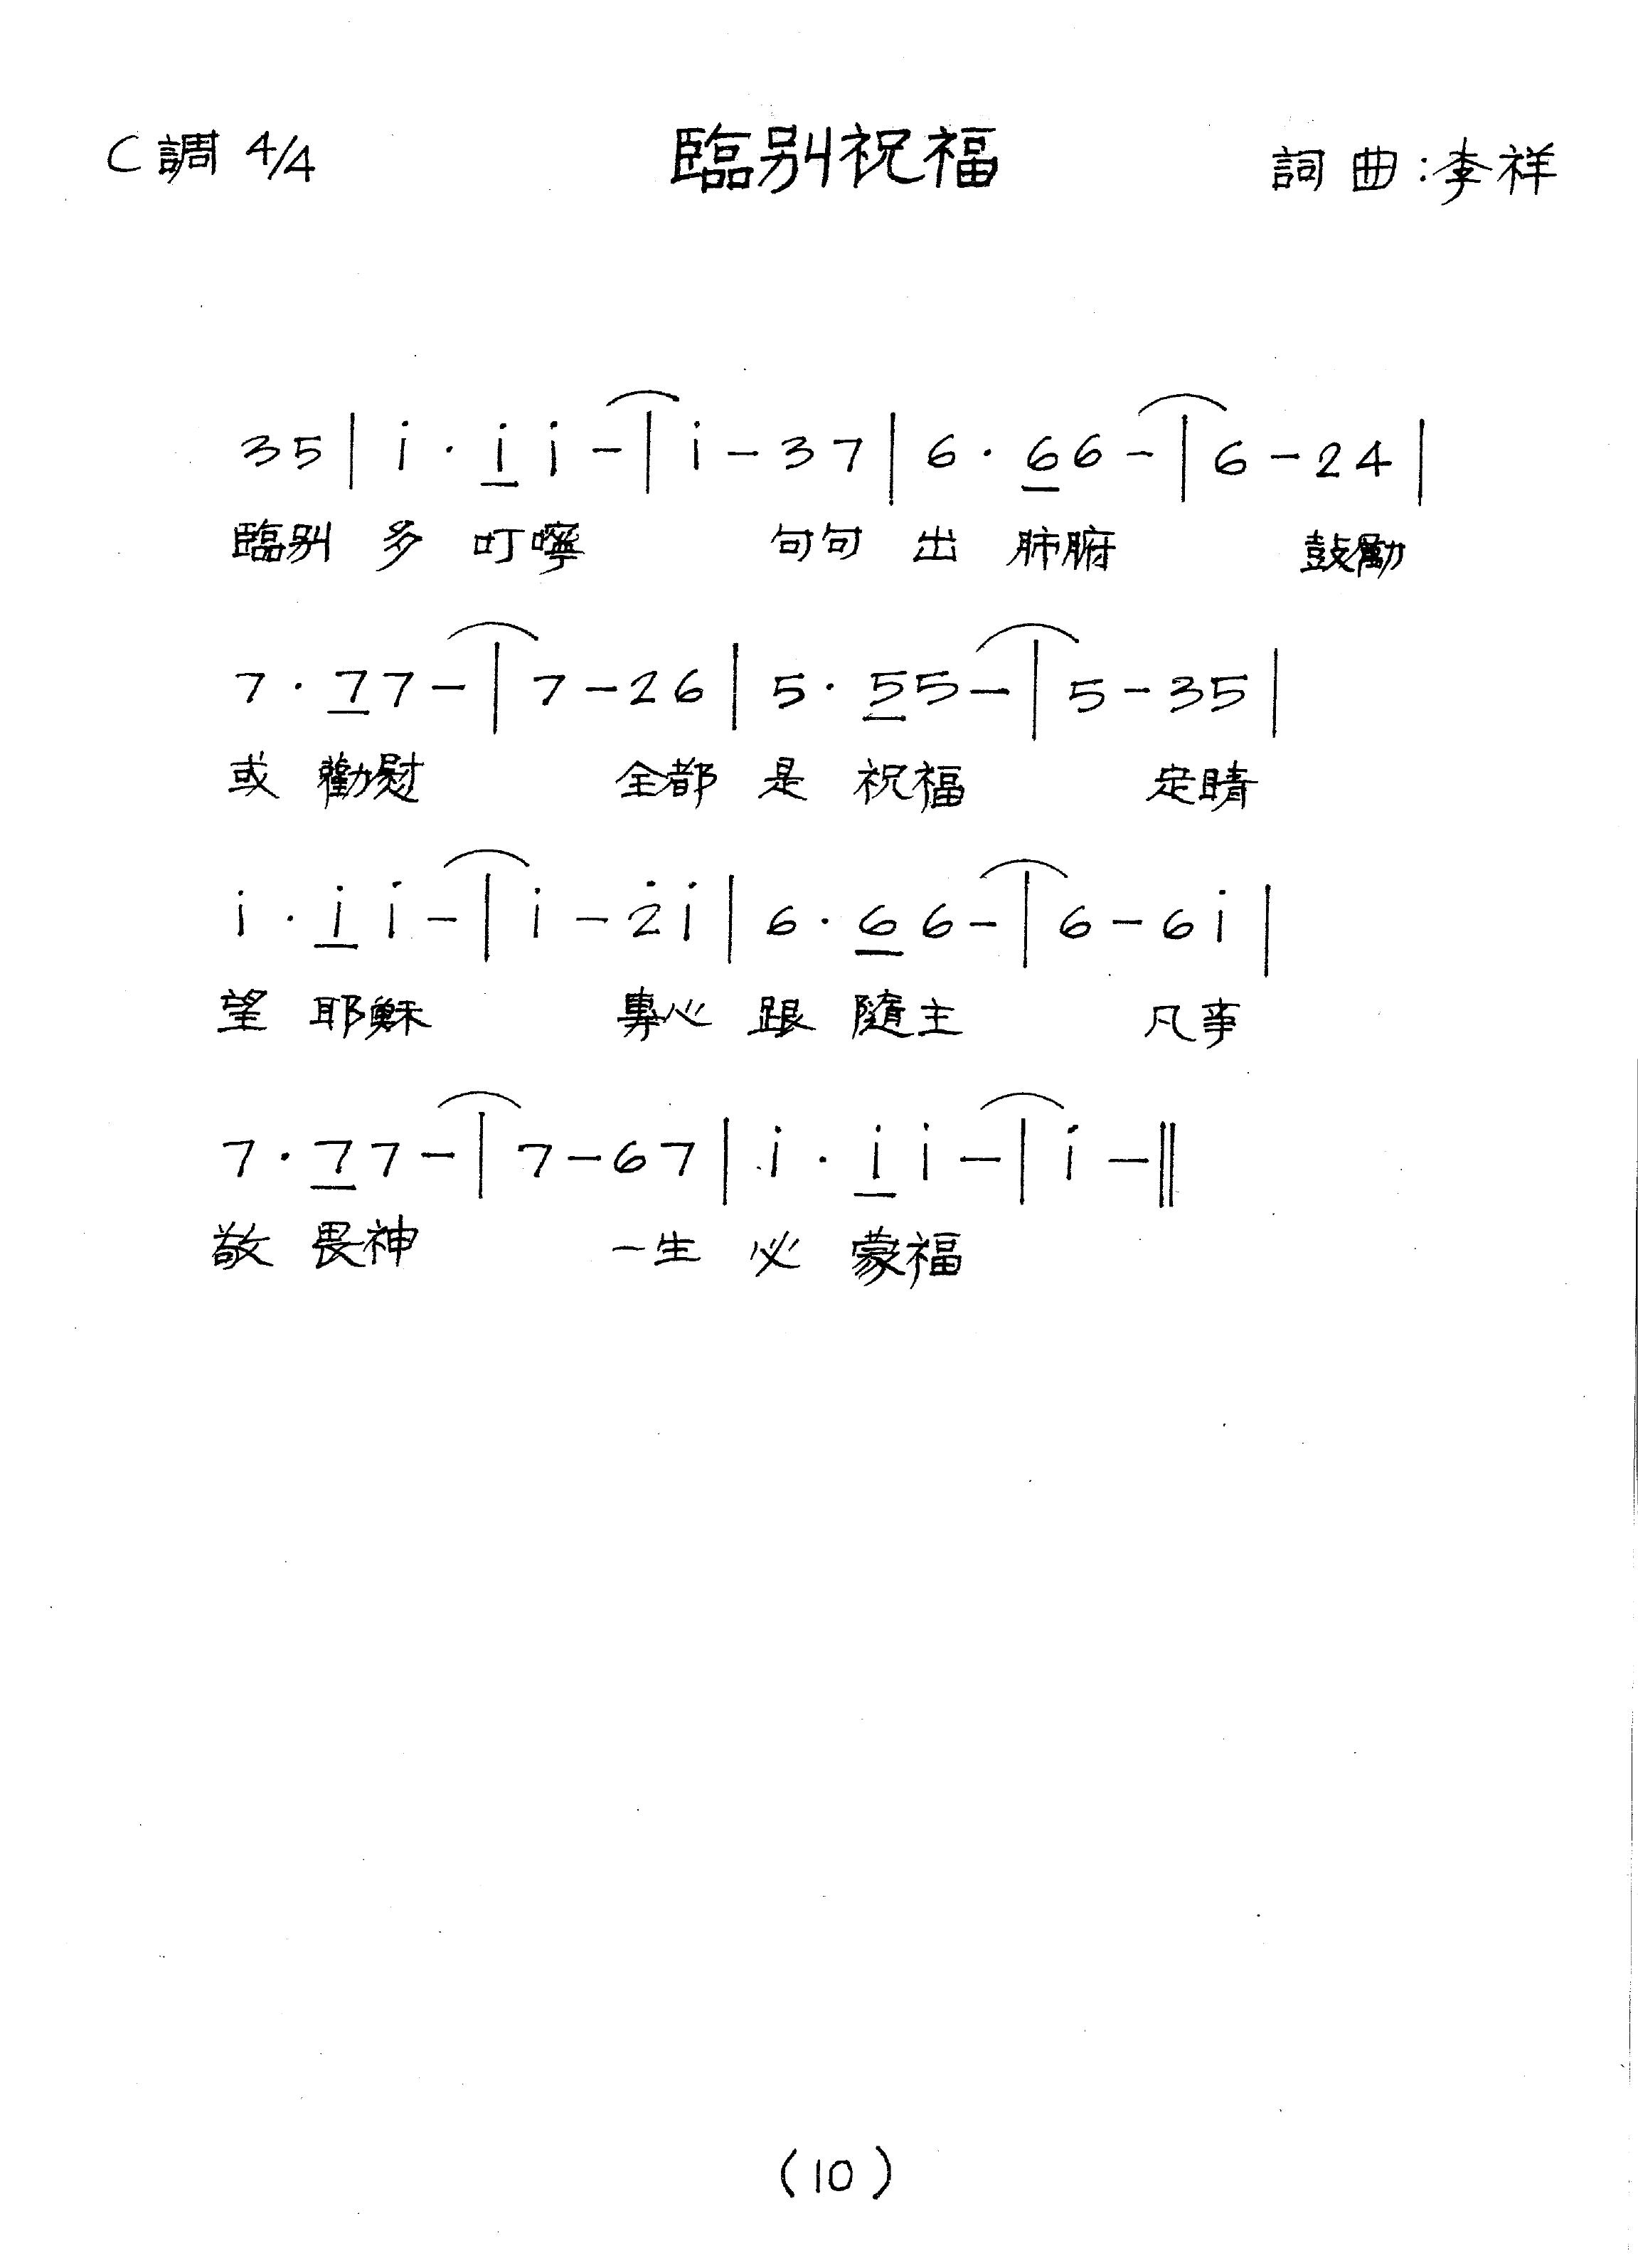 C調 4/4 臨别祝福 詞曲:李祥
35| i · i i -| i - 3 7 | 6 · 6 6 -| 6 - 2 4 |
臨别 多 叮嚀 句句 出 肺腑 鼓勵
7 · 7 7 -| 7 - 2 6 | 5 · 5 5 -| 5 - 3 5 |
或 勸慰 全都 是 祝福 定睛
i · i i -| i - 2̇ i | 6 · 6 6 -| 6 - 6 i |
望 耶穌 專心 跟 隨主 凡事
7 · 7 7 -| 7 - 6 7 | i · i i -| i -‖
敬 畏神 一生 必 蒙福
(10)